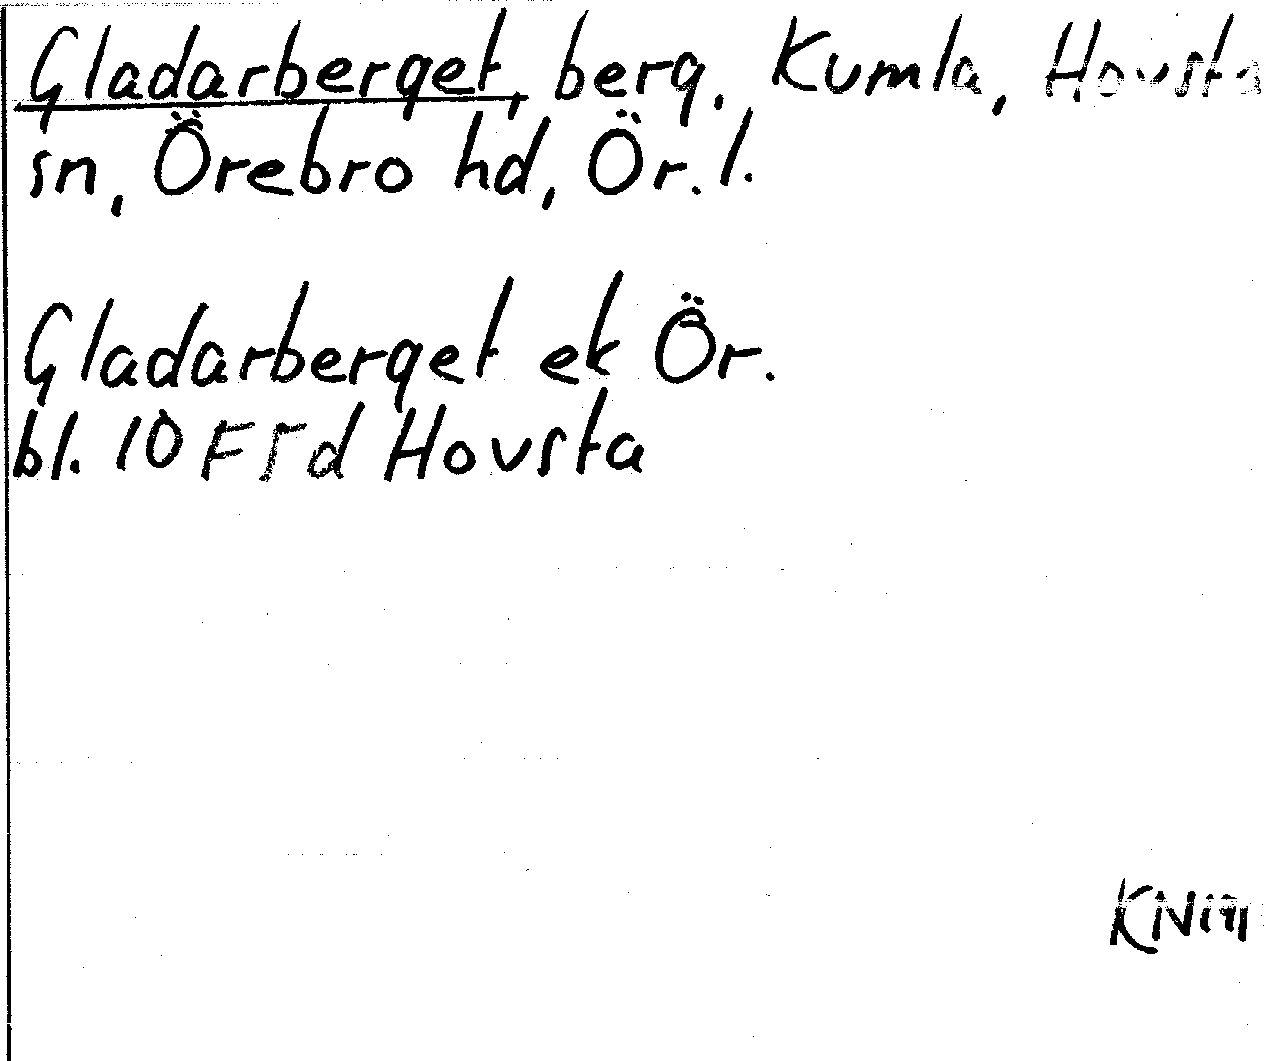 Gladarberget, berg, Kumla, Hovsta
sn, Örebro hd, Ör. l.
Gladarberget ek Ör.
bl. 10 F 5 d Hovsta